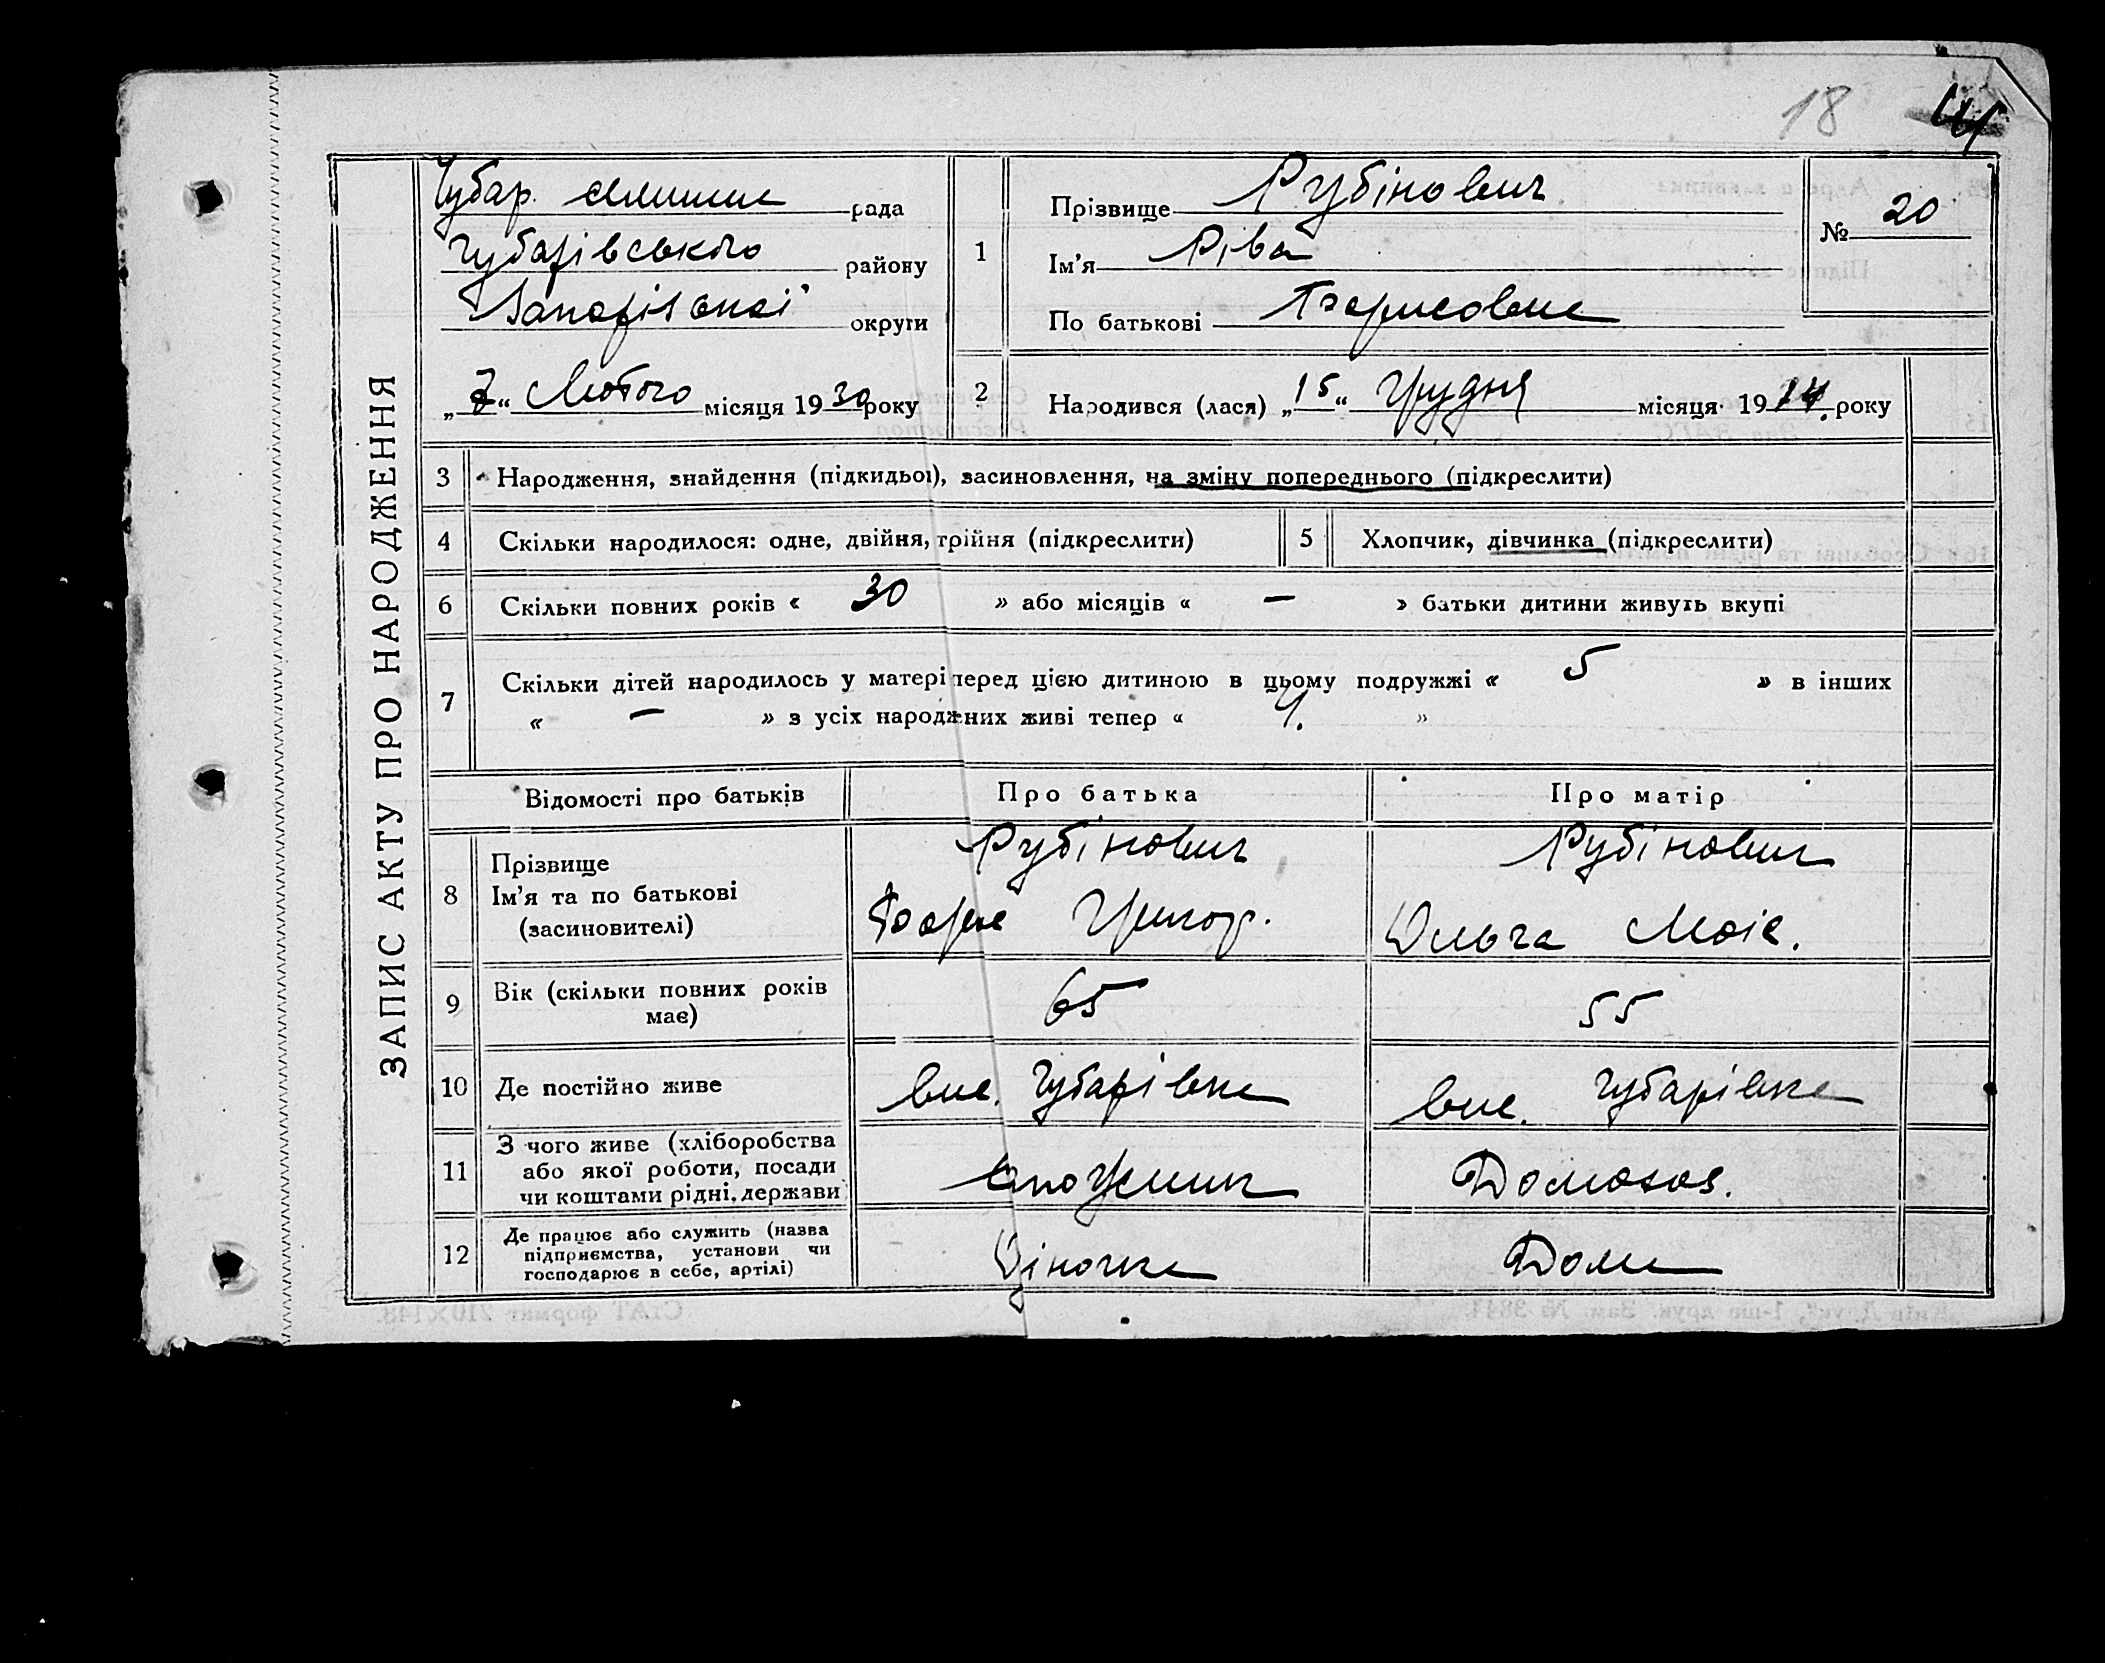 18
ЗАПИС АКТУ ПРО НАРОДЖЕННЯ
Чубар. селищне рада
Чубарівського району
Запорізької округи
„7“ Лютого місяця 1930 року
1 Прізвище Рубінович
Ім’я Ріва
По батькові Борисовне
№ 20
2 Народився (лася) „15“ Грудня місяця 1914. року
3 Народження, знайдення (підкидьої), засиновлення, на зміну попереднього (підкреслити)
4 Скільки народилося: одне, двійня, трійня (підкреслити) 5 Хлопчик, дівчинка (підкреслити)
6 Скільки повних років « 30 » або місяців « — » батьки дитини живуть вкупі
7 Скільки дітей народилось у матері перед цією дитиною в цьому подружжі « 5 » в інших
« — » з усіх народжених живі тепер « 4. »
Відомості про батьків Про батька Про матір
8 Прізвище Рубінович Рубінович
Ім’я та по батькові Борис Григор. Ольга Моіс.
(засиновителі)
9 Вік (скільки повних років має) 65 55
10 Де постійно живе вис. Чубарівка вис. Чубарівка
11 З чого живе (хліборобства
або якої роботи, посади
чи коштами рідні, держави Домогос.
12 Де працює або служить (назва
підприємства, установи чи
господарює в себе, артілі) Одіночка Дома